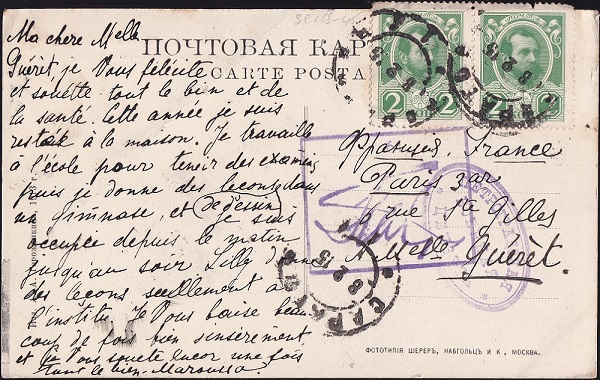 ПОЧТОВАЯ КАР
CARTE POSTA
Ma chere Melle
Guérit, je Vous félicite
et souette tout le bien et de
la santé. Cette année je suis
à la maison. Je travaille
à l'école pour tenir des examens
puis je donne des lecons dans
un gimnase, et (de dessin) je suis
occupée depuis le matin
jusqu'au soir Lilly donne
des lecons seullement à
l'institu. Je Vous baise beau
coup de fois bien sinsèrement
et je Vous souete encor une fois
tout le bien. Maroussa.
2
2
Франция, France
Paris 3 ar
6 rue St Gilles
A Melle Guérèt.
ФОТОТИПІЯ ШЕРЕРЪ, НАБГОЛЬЦЪ И К., МОСКВА.